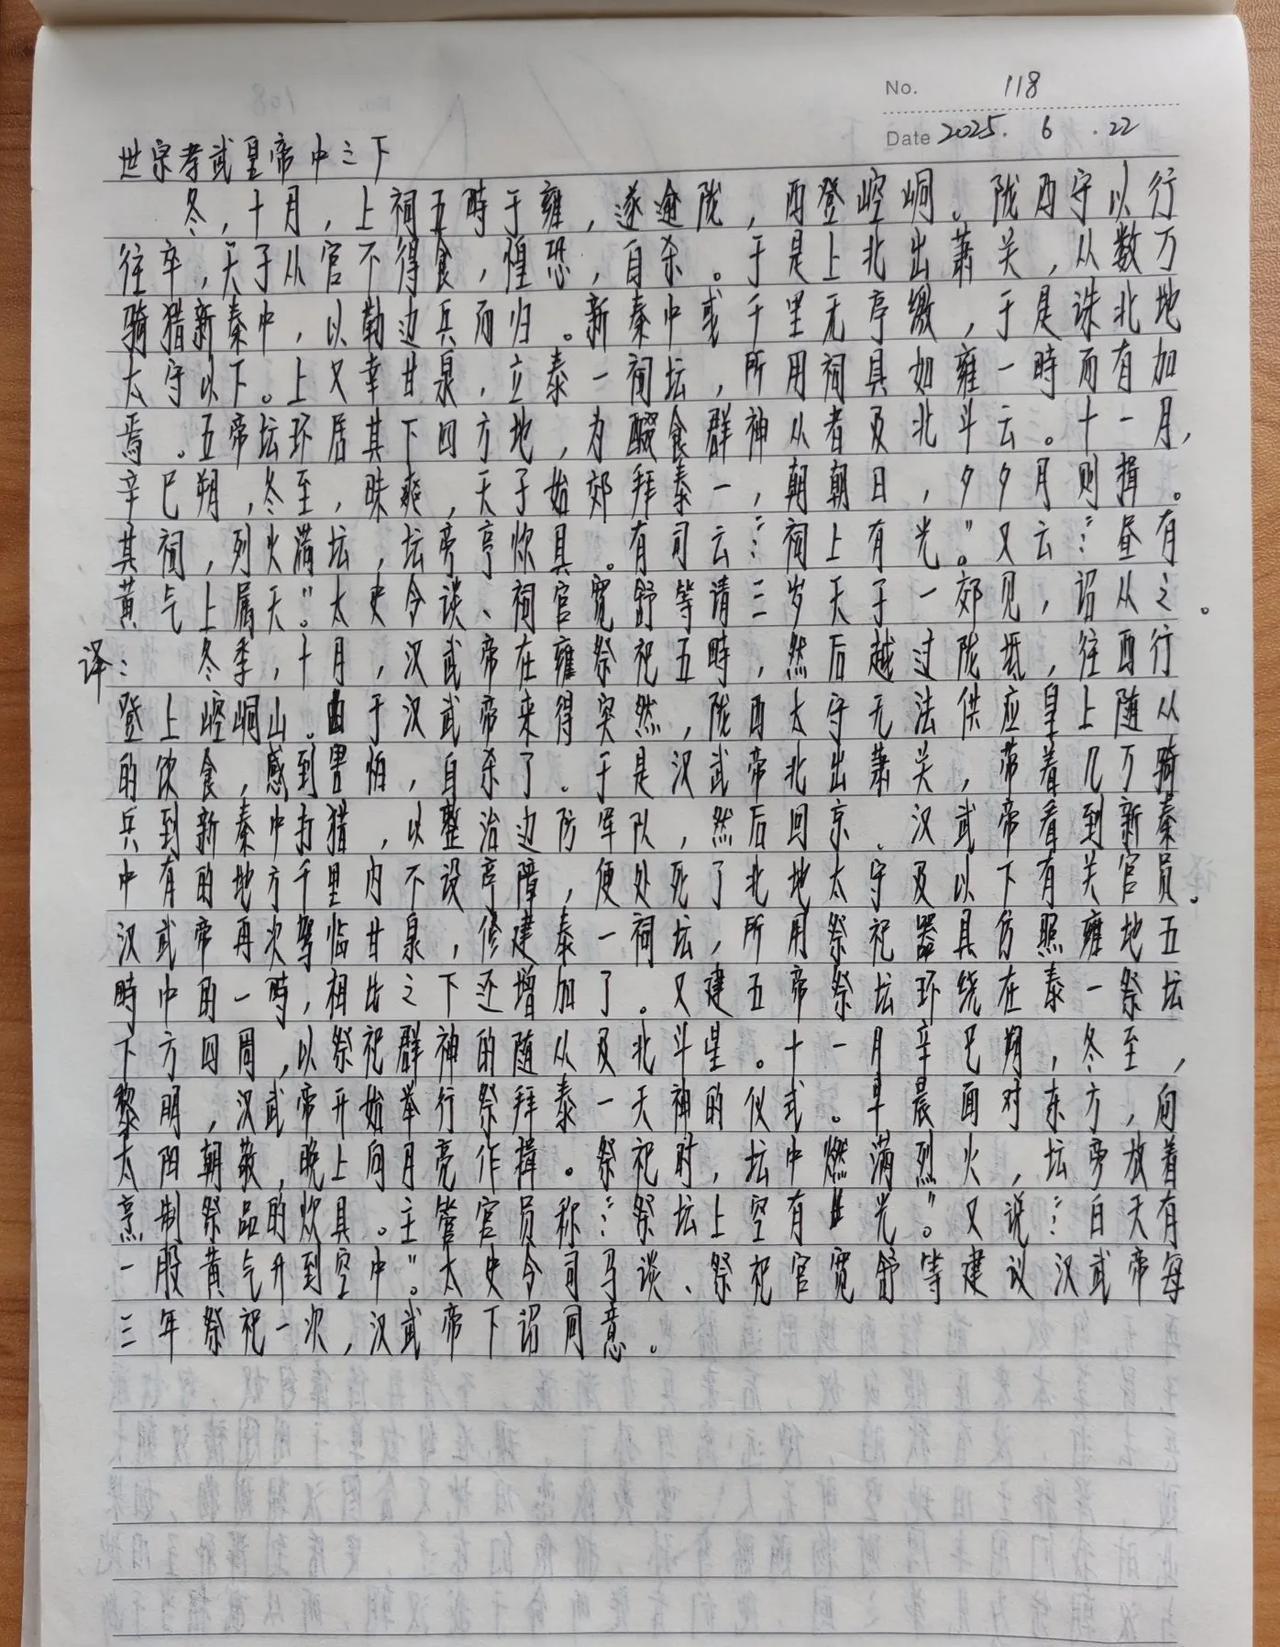 No. 118
Date 2025. 6 .22
世宗孝武皇帝中之下
冬，十月，上祠五畤于雍，遂逾陇，西登崆峒。陇西守以行
往卒，天子从官不得食，惶恐，自杀。于是上北出萧关，从数万
骑猎新秦中，以勒边兵而归。新秦中或千里无亭缴，于是诛北地
太守以下。上又幸甘泉，立泰一祠坛，所用祠具如雍一畤而有加
焉。五帝坛环居其下四方地，为醊食群神从者及北斗云。十一月，
辛巳朔，冬至，昧爽，天子始郊拜泰一，朝朝日，夕夕月则揖。
其祠，列火满坛，坛旁亨炊具。有司云：“祠上有光。”又云：“昼有
黄气上属天。”太史令谈、祠官宽舒等请三岁天子一郊见，诏从之。
译：冬季，十月，汉武帝在雍祭祀五畤，然后越过陇坻，往西行
登上崆峒山。由于汉武帝来得突然，陇西太守无法供应皇上随从
的饮食，感到害怕，自杀了。于是汉武帝北出萧关，带着几万骑
兵到新秦中打猎，以整治边防军队，然后回京。汉武帝看到新秦
中有的地方千里内不设亭障，便处死了北地太守及以下有关官员。
汉武帝再次驾临甘泉，修建泰一祠坛，所用祭祀器具仿照雍地五
畤中的一畤，相比之下还增加了。又建五帝祭坛环绕在泰一祭坛
下方四周，以祭祀群神的随从及北斗星。十一月辛巳朔，冬至，
黎明，汉武帝开始举行祭拜泰一天神的仪式。早晨面对东方，向
太阳朝敬，晚上向月亮作揖。祭祀时，坛中燃满烈火，坛旁放着
烹制祭品的炊具。主管官员称：“祭坛上空有光。”又说：“白天有
一股黄气升到空中”。太史令司马谈、祭祀官宽舒等建议汉武帝每
三年祭祀一次，汉武帝下诏同意。